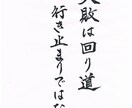 失敗は回り道
行き止まりではな